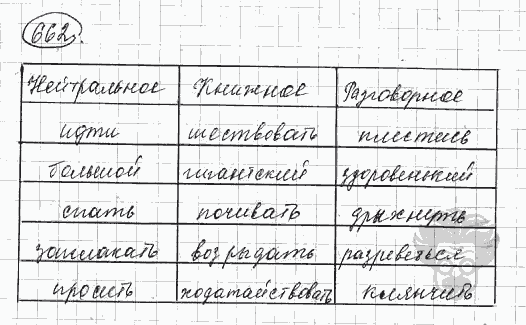 662.
Нейтральное Книжное Разговорное
идти шествовать плестись
большой гигантский здоровенький
спать почивать дрыхнуть
заплакать возрыдать разреветься
просить ходатайствовать клянчить